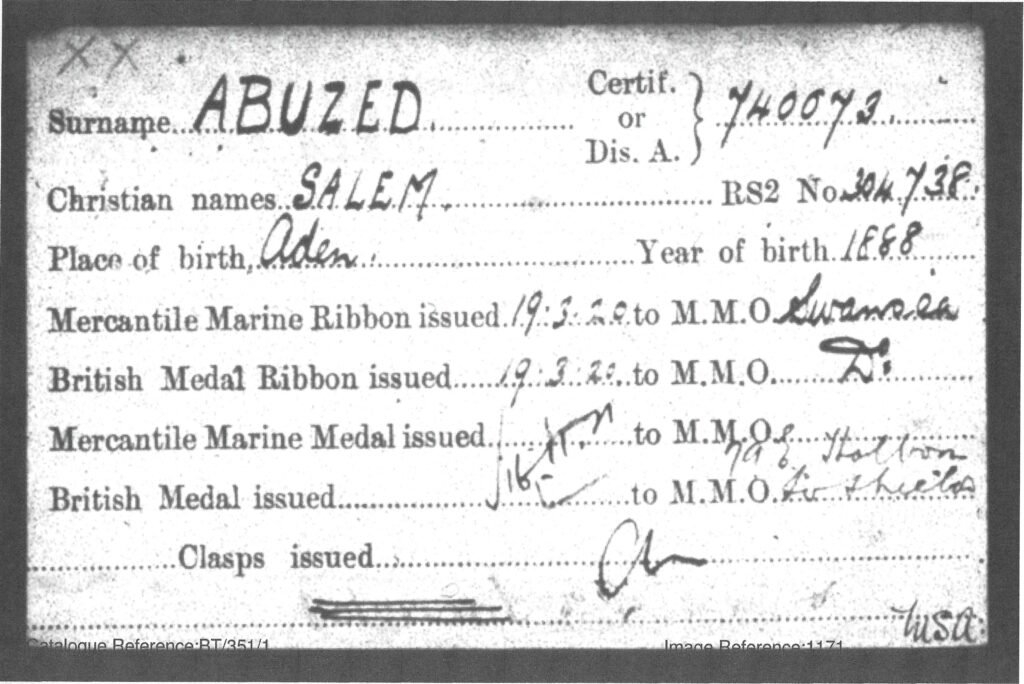 X X
Surname ABUZED. Certif. or Dis. A. } 740073.
Christian names SALEM. RS2 No. 304738.
Place of birth, Aden. Year of birth 1888
Mercantile Marine Ribbon issued 19.3.20 to M.M.O. Swansea
British Medal Ribbon issued 19.3.20 to M.M.O. Do.
Mercantile Marine Medal issued to M.M.O.
British Medal issued to M.M.O. So Shields
Clasps issued
Catalogue Reference:BT/351/1 Image Reference:1171